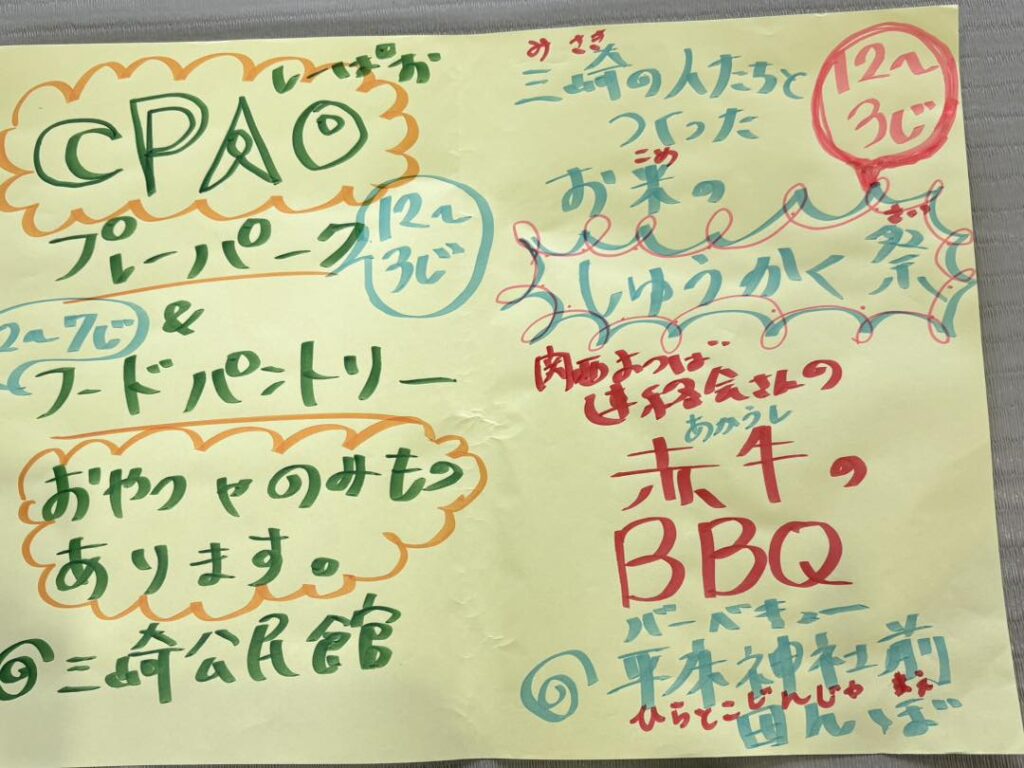 しーぱお
CPAO
プレーパーク
12〜
3じ
&
2〜7じ
フードパントリー
おやつやのみもの
あります。
@三崎公民館
み さき
三崎の人たちと
つくった
こめ
お米の
12〜
3じ
さい
しゅうかく祭
関西よつば
連絡会さんの
あかうし
赤牛の
BBQ
バーベキュー
@平床神社前
ひらとこじんじゃ まえ
田んぼ